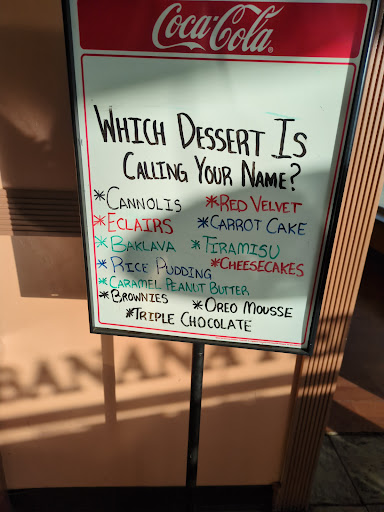 Coca-Cola
WHICH DESSERT IS
CALLING YOUR NAME?
*CANNOLIS *RED VELVET
*ECLAIRS *CARROT CAKE
*BAKLAVA *TIRAMISU
*RICE PUDDING *CHEESECAKES
*CARAMEL PEANUT BUTTER
*BROWNIES *OREO MOUSSE
*TRIPLE CHOCOLATE